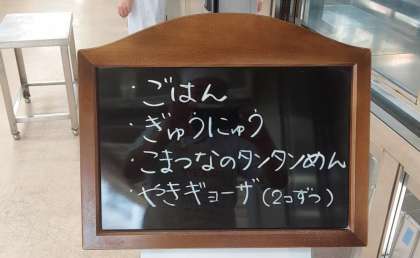 ・ごはん
・ぎゅうにゅう
・こまつなのタンタンめん
・やきギョーザ(2コずつ)